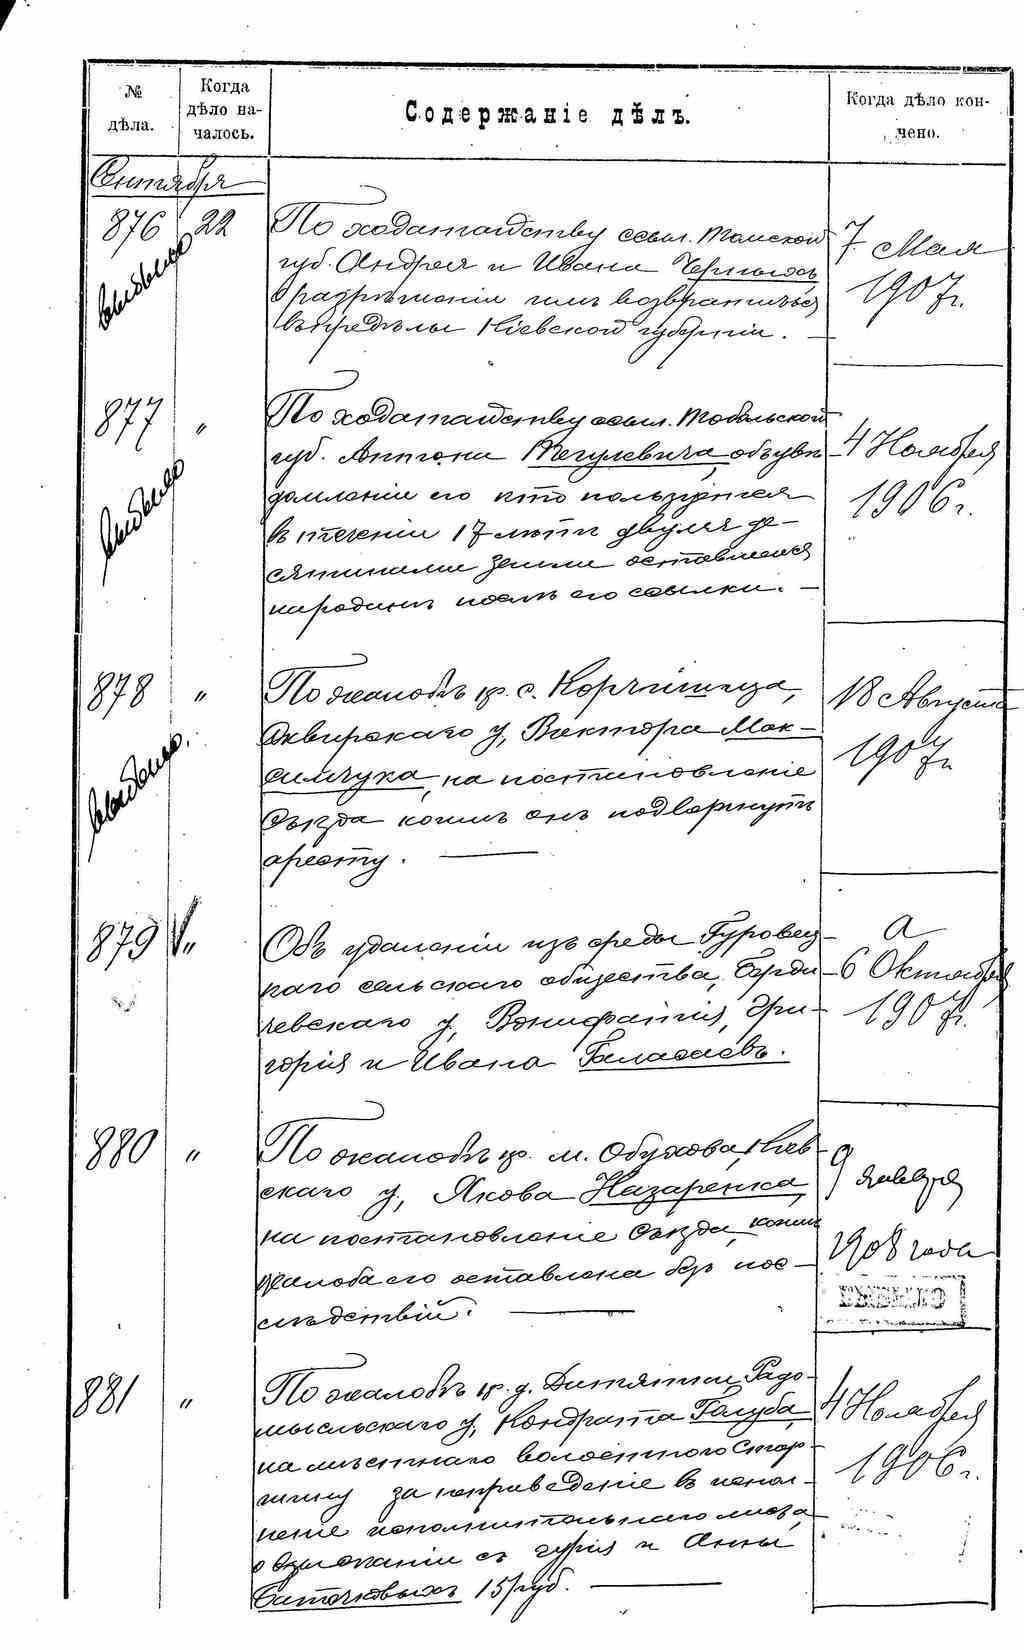 № дѣла.
Когда дѣло началось.
Содержаніе дѣлъ.
Когда дѣло кончено.
Сентября
876
22
По ходатайству ссыл. Томской
губ. Андрея и Ивана Черныхъ
о разрѣшеніи имъ возвратиться
въ предѣлы Кіевской губерніи. —
7 Мая
1907 г.
выбыло
877
"
По ходатайству ссыл. Тобольской
губ. Антона объ увѣ-
домленіи его кто пользуется
въ теченіи 17 лѣтъ двумя де-
сятинами земли оставшейся
послѣ его ссылки. —
4 Ноября
1906 г.
выбыло
878
"
По жалобѣ кр. с.
Сквирскаго у, Виктора Мак-
симчука, на постановленіе
Съѣзда коимъ онъ подвергнутъ
аресту. —
18 Августа
1907 г.
выбыло.
879
"
Объ удаленіи изъ среды Гуровец-
каго сельскаго общества, Берди-
чевскаго у, Вонифатія, Гри-
горія и Ивана
6 Октября
1907 г.
880
"
По жалобѣ кр. м. Обухова, Кіев-
скаго у, Якова Назаренка,
на постановленіе Съѣзда, коимъ
жалоба его оставлена безъ пос-
лѣдствій. —
9 января
1908 года
881
"
По жалобѣ кр. д. Дитятки Радо-
мысльскаго у, Кондрата Голуба,
на мѣстнаго волостного Стар-
шину за неприведеніе въ испол-
неніе исполнительнаго листа,
о взысканіи съ Гурія и Анны
15 руб. —
4 Ноября
1906 г.